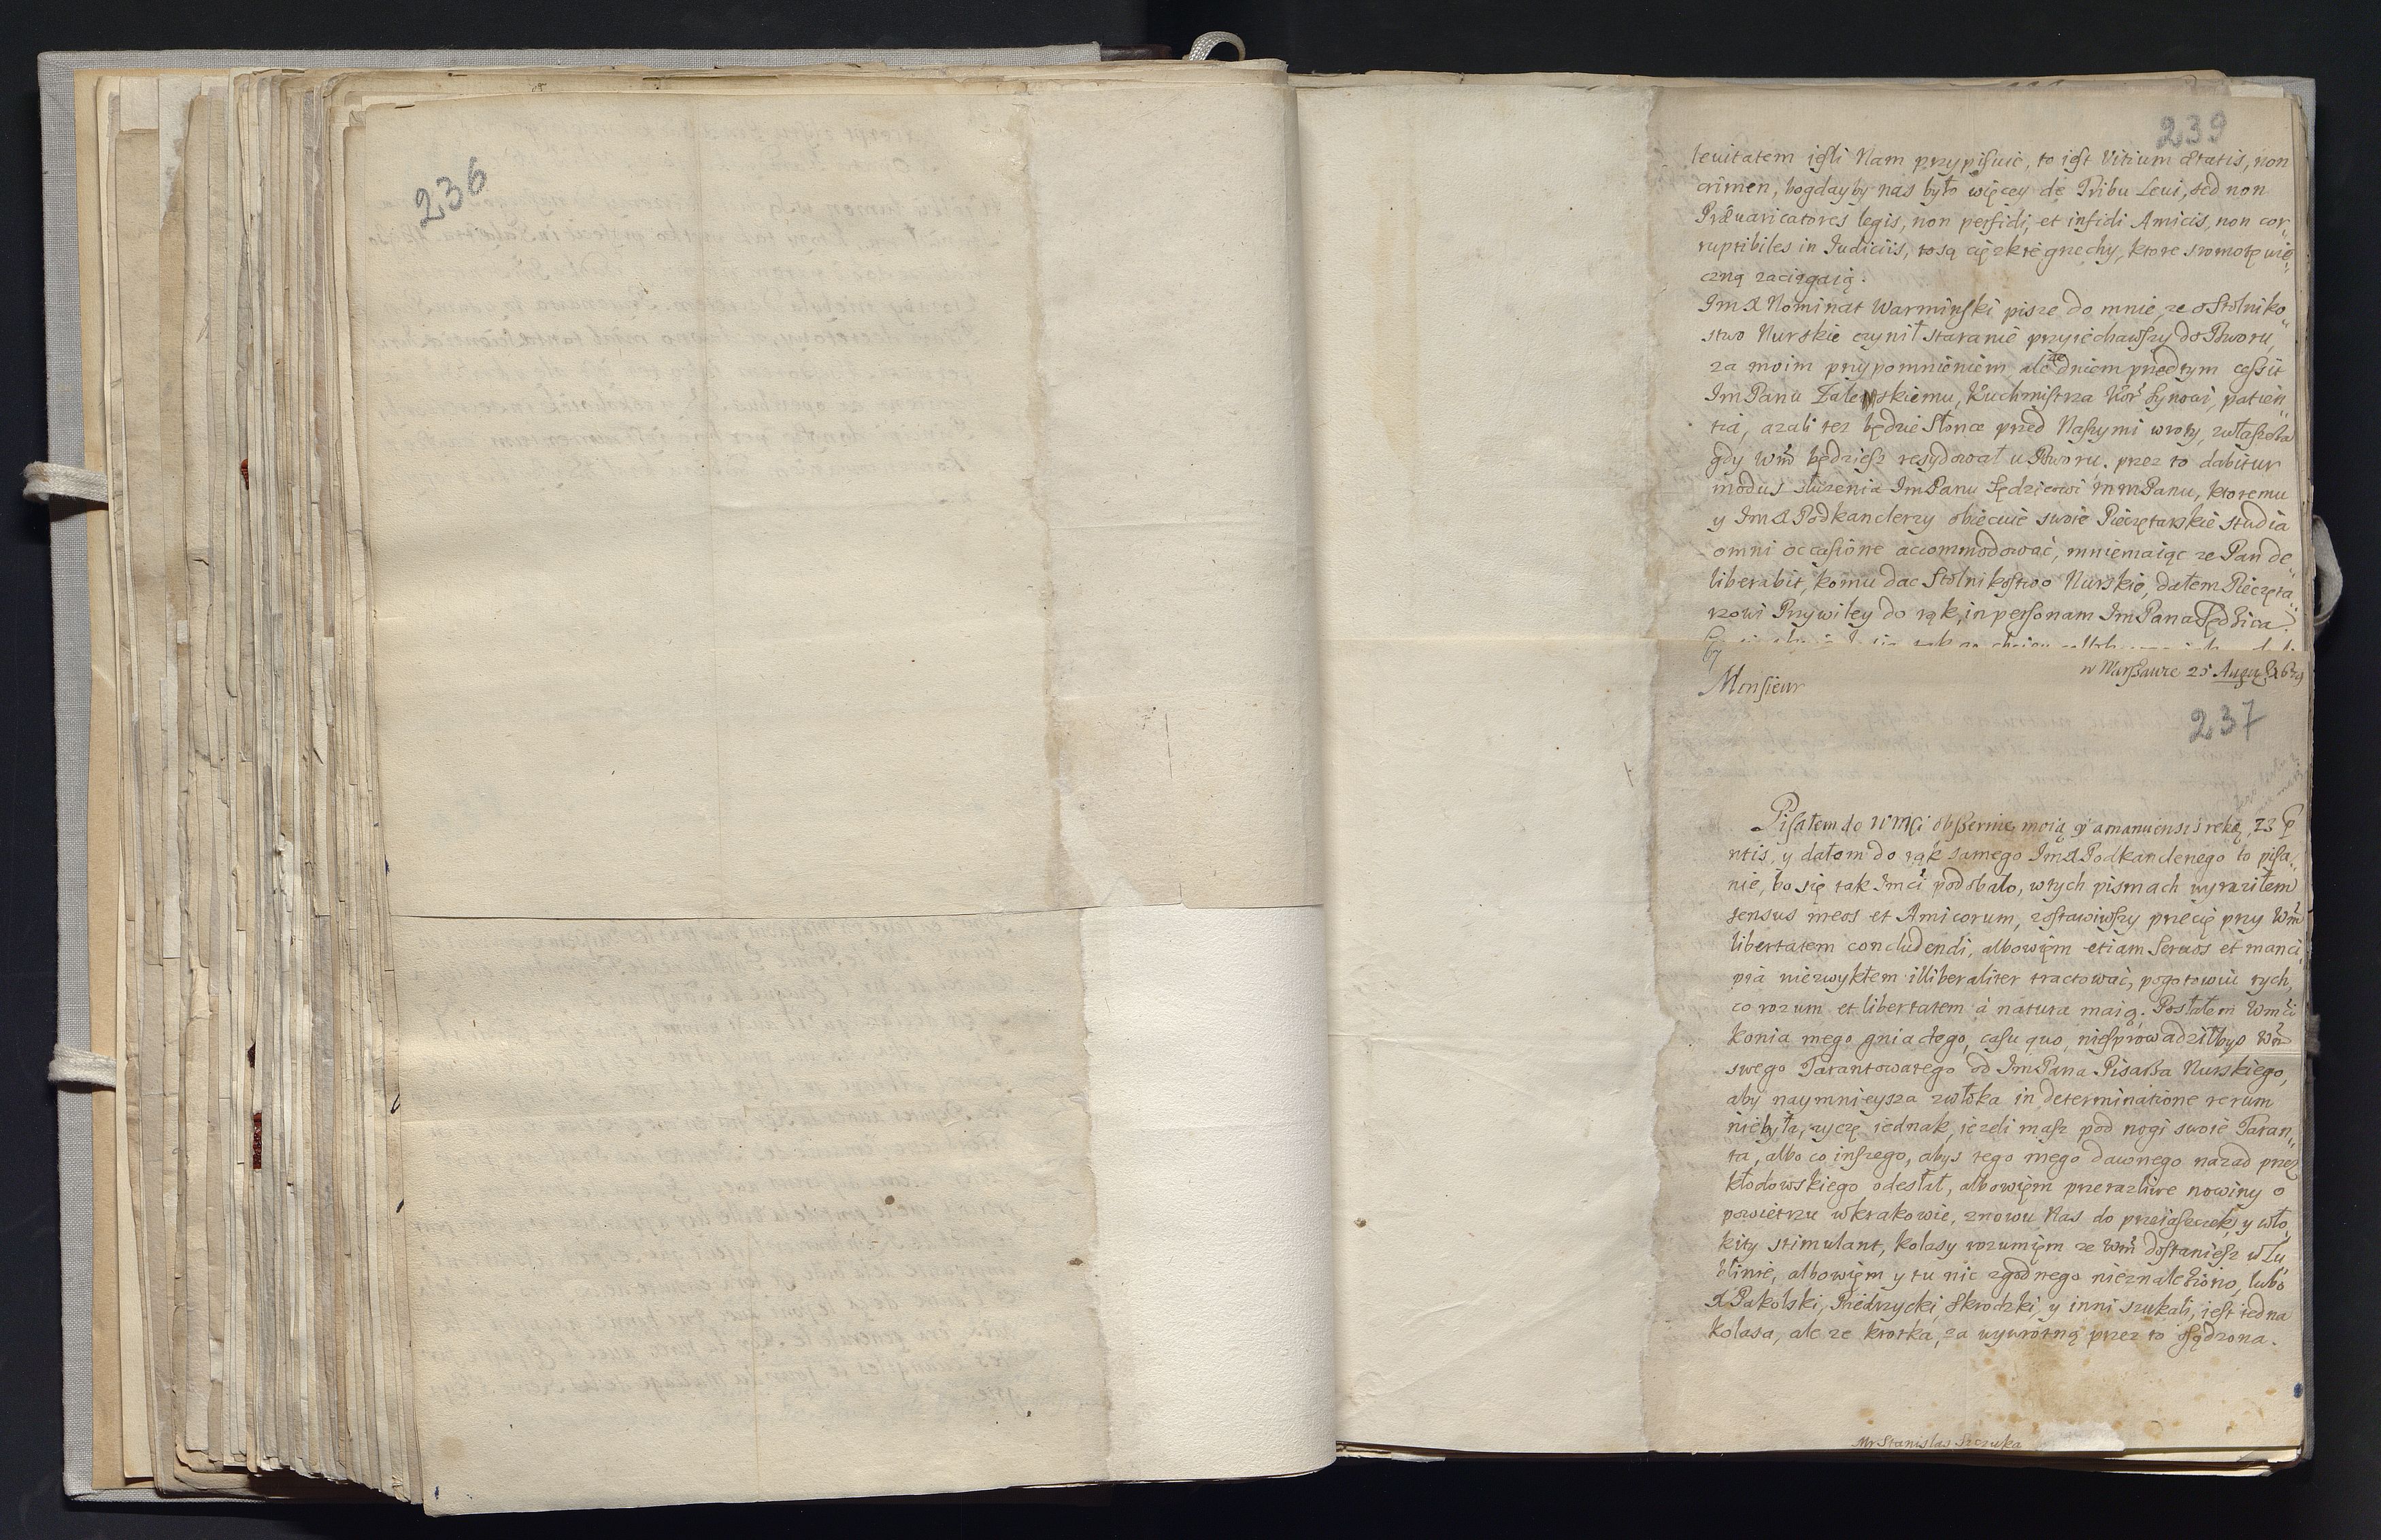 236
239
levitatem jesli Nam przypisuie, to iest Vitium ætatis, non
crimen, bogdayby nas było więcey de Tribu Levi, sed non
Prævaricatores legis, non perfidi, et infidi Amicis, non cor„
ruptibiles in Judiciis, to są cięzkie grzechy, ktore sromotę wie„
czną zaciągaią.
Im X Nominat Warminski pisze do mnie, ze o Stolniko„
stwo Nurskie czynił staranie przyiechawszy do Dworu,
za moim przypomnieniem, ale ze dniem przedtym cessit
Im Panu Zalewskiemu, Kuchmistrza Kor Synowi, patien„
tia, azali tez będzie Słonce przed Naszymi wroty, zwłaszcza
gdy Wm będziesz resydował u Dworu. przez to dabitur
modus słuzenia Im Panu Sędziemu mm Panu, ktoremu
y Im X Podkanclerzy obiecuie swoie Pieczętarskie studia
omni occasione accommodować, mniemaiąc ze Pan de„
liberabit, komu dac Stolnikostwo Nurskie, dałem Pieczęta„
rzowi Przywiley do rąk, in personam Im Pana Sędzica.
w Warszawie 25 Augu
Monsieur
237
Pisałem do WMći obszernie, moią y amanuensis ręką, 23
ntis, y dałem do rąk samego Im X Podkanclerzego to pisa„
nie, bo się tak Imći podobało, w tych pismach wyraziłem
sensus meos et Amicorum, zostawiwszy przecię przy Wm
libertatem concludendi, albowięm etiam Servos et manci„
pia niezwykłem illiberaliter tractować, pogotowiu tych,
co rozum et libertatem à natura maią. Posłałem Wmći
konia mego gniadego, casu quo, niesprowadziłbys Wm
swego Tarantowatego od Im Pana Pisarza Nurskiego,
aby naymnieysza zwłoka in determinatione rerum
niebyła, zyczę iednak, iezeli masz pod nogi swoie Taran„
ta, albo co inszego, abys tego mego dawnego nazad przez
Kłodowskiego odesłał, albowięm przerazliwe nowiny o
powietrzu w Krakowie, znowu Nas do przeiaszczek, y wło„
kity stimulant, kolasy rozumięm ze Wm dostaniesz w Lu„
blinie, albowięm y tu nic zgodnego nieznaleziono, lubo
X Pakolski, Biedrzycki, Skrodzki, y inni szukali, iest iedna
Kolasa, ale ze krotka, za wywrotną przez to osądzona.
Mr Stanislas Szczuka